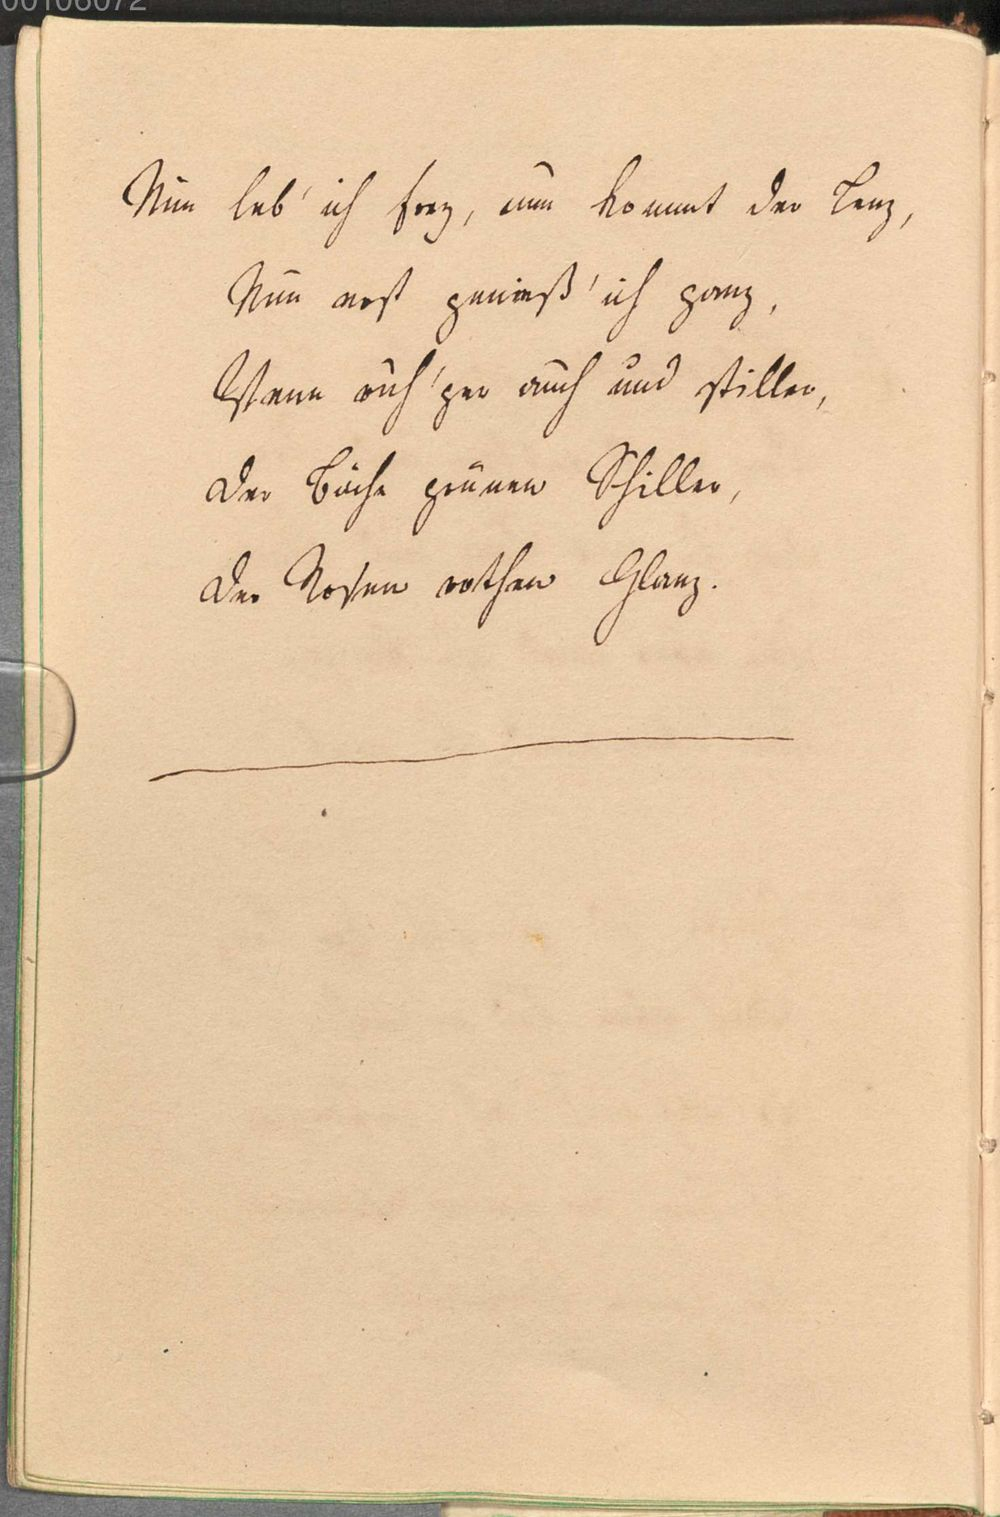 00106072
Nun leb' ich frey, nun kommt der Lenz,
Nun erst genieß' ich ganz,
Wenn ruh'ger auch und stiller,
Der Bäche grünen Schiller,
Der Rosen rothen Glanz.